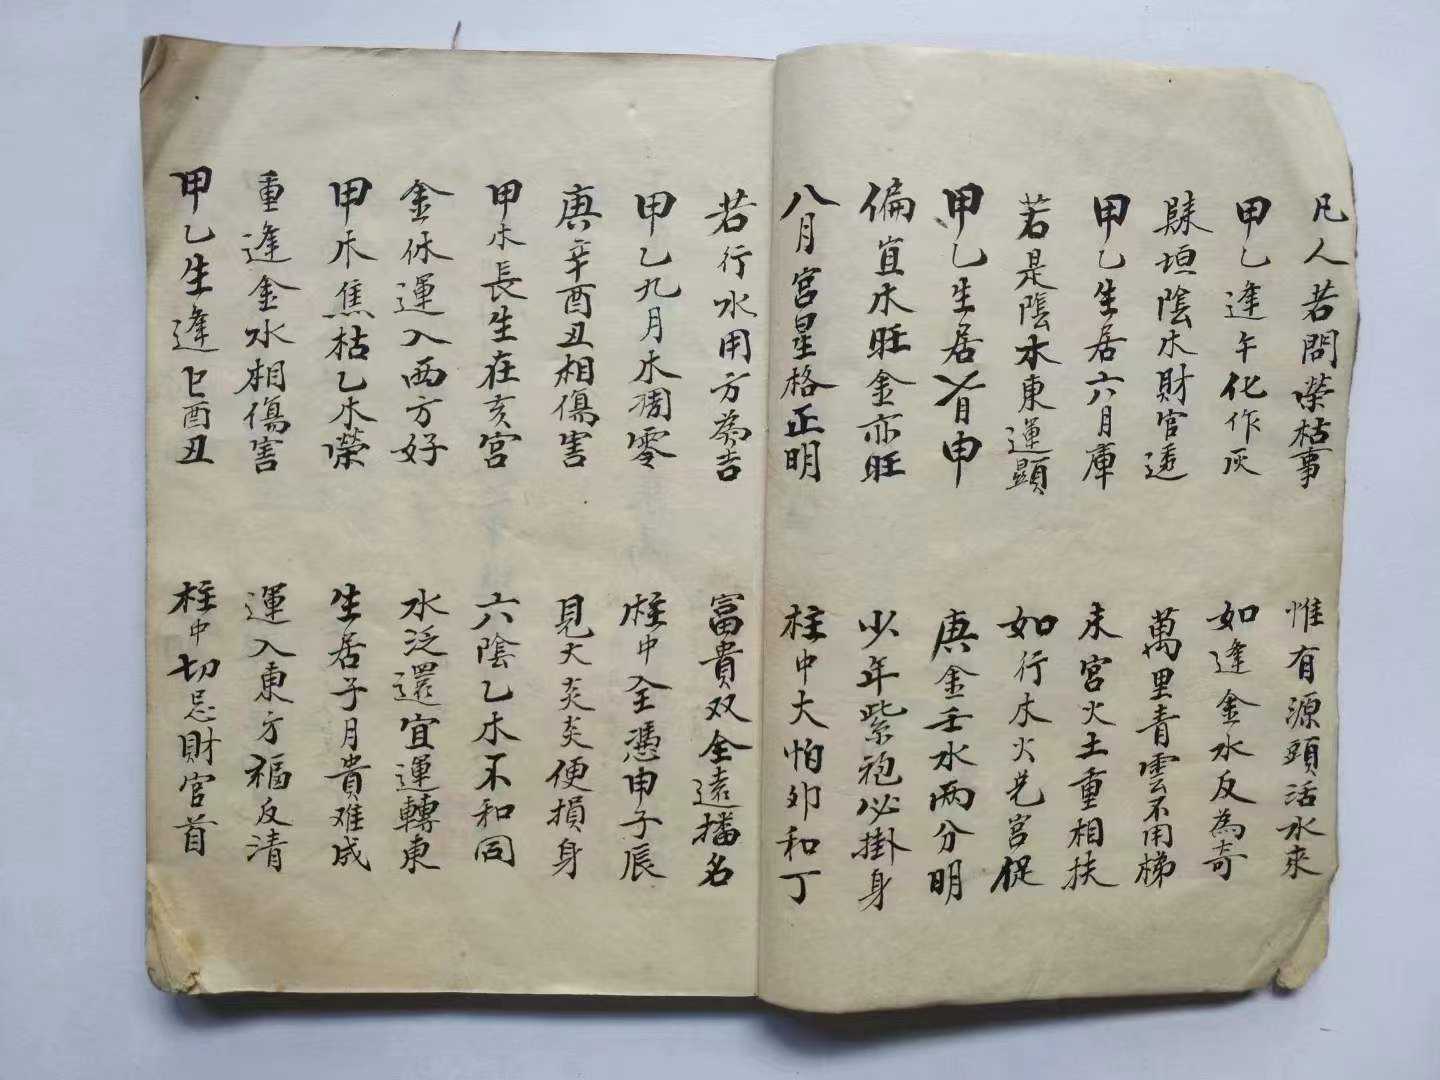 凡人若問榮枯事
惟有源頭活水來
甲乙逢午化作灰
如逢金水反為奇
垣陰水財官透
萬里青雲不用梯
甲乙生居六月庫
未宮火土重相扶
若是陰水東運顯
如行木火宮促
甲乙生居月申
庚金壬水兩分明
偏宜水旺金亦旺
少年紫袍必掛身
八月宮星格正明
柱中大怕卯和丁
若行水用方為吉
富貴双全遠播名
甲乙九月木凋零
柱中全憑申子辰
庚辛酉丑相傷害
見火炎炎便損身
甲木長生在亥宮
六陰乙木不和同
金休運入西方好
水泛還宜運轉東
甲木焦枯乙木榮
生居子月貴难成
重逢金水相傷害
運入東方福反清
甲乙生逢巳酉丑
柱中切忌財官首